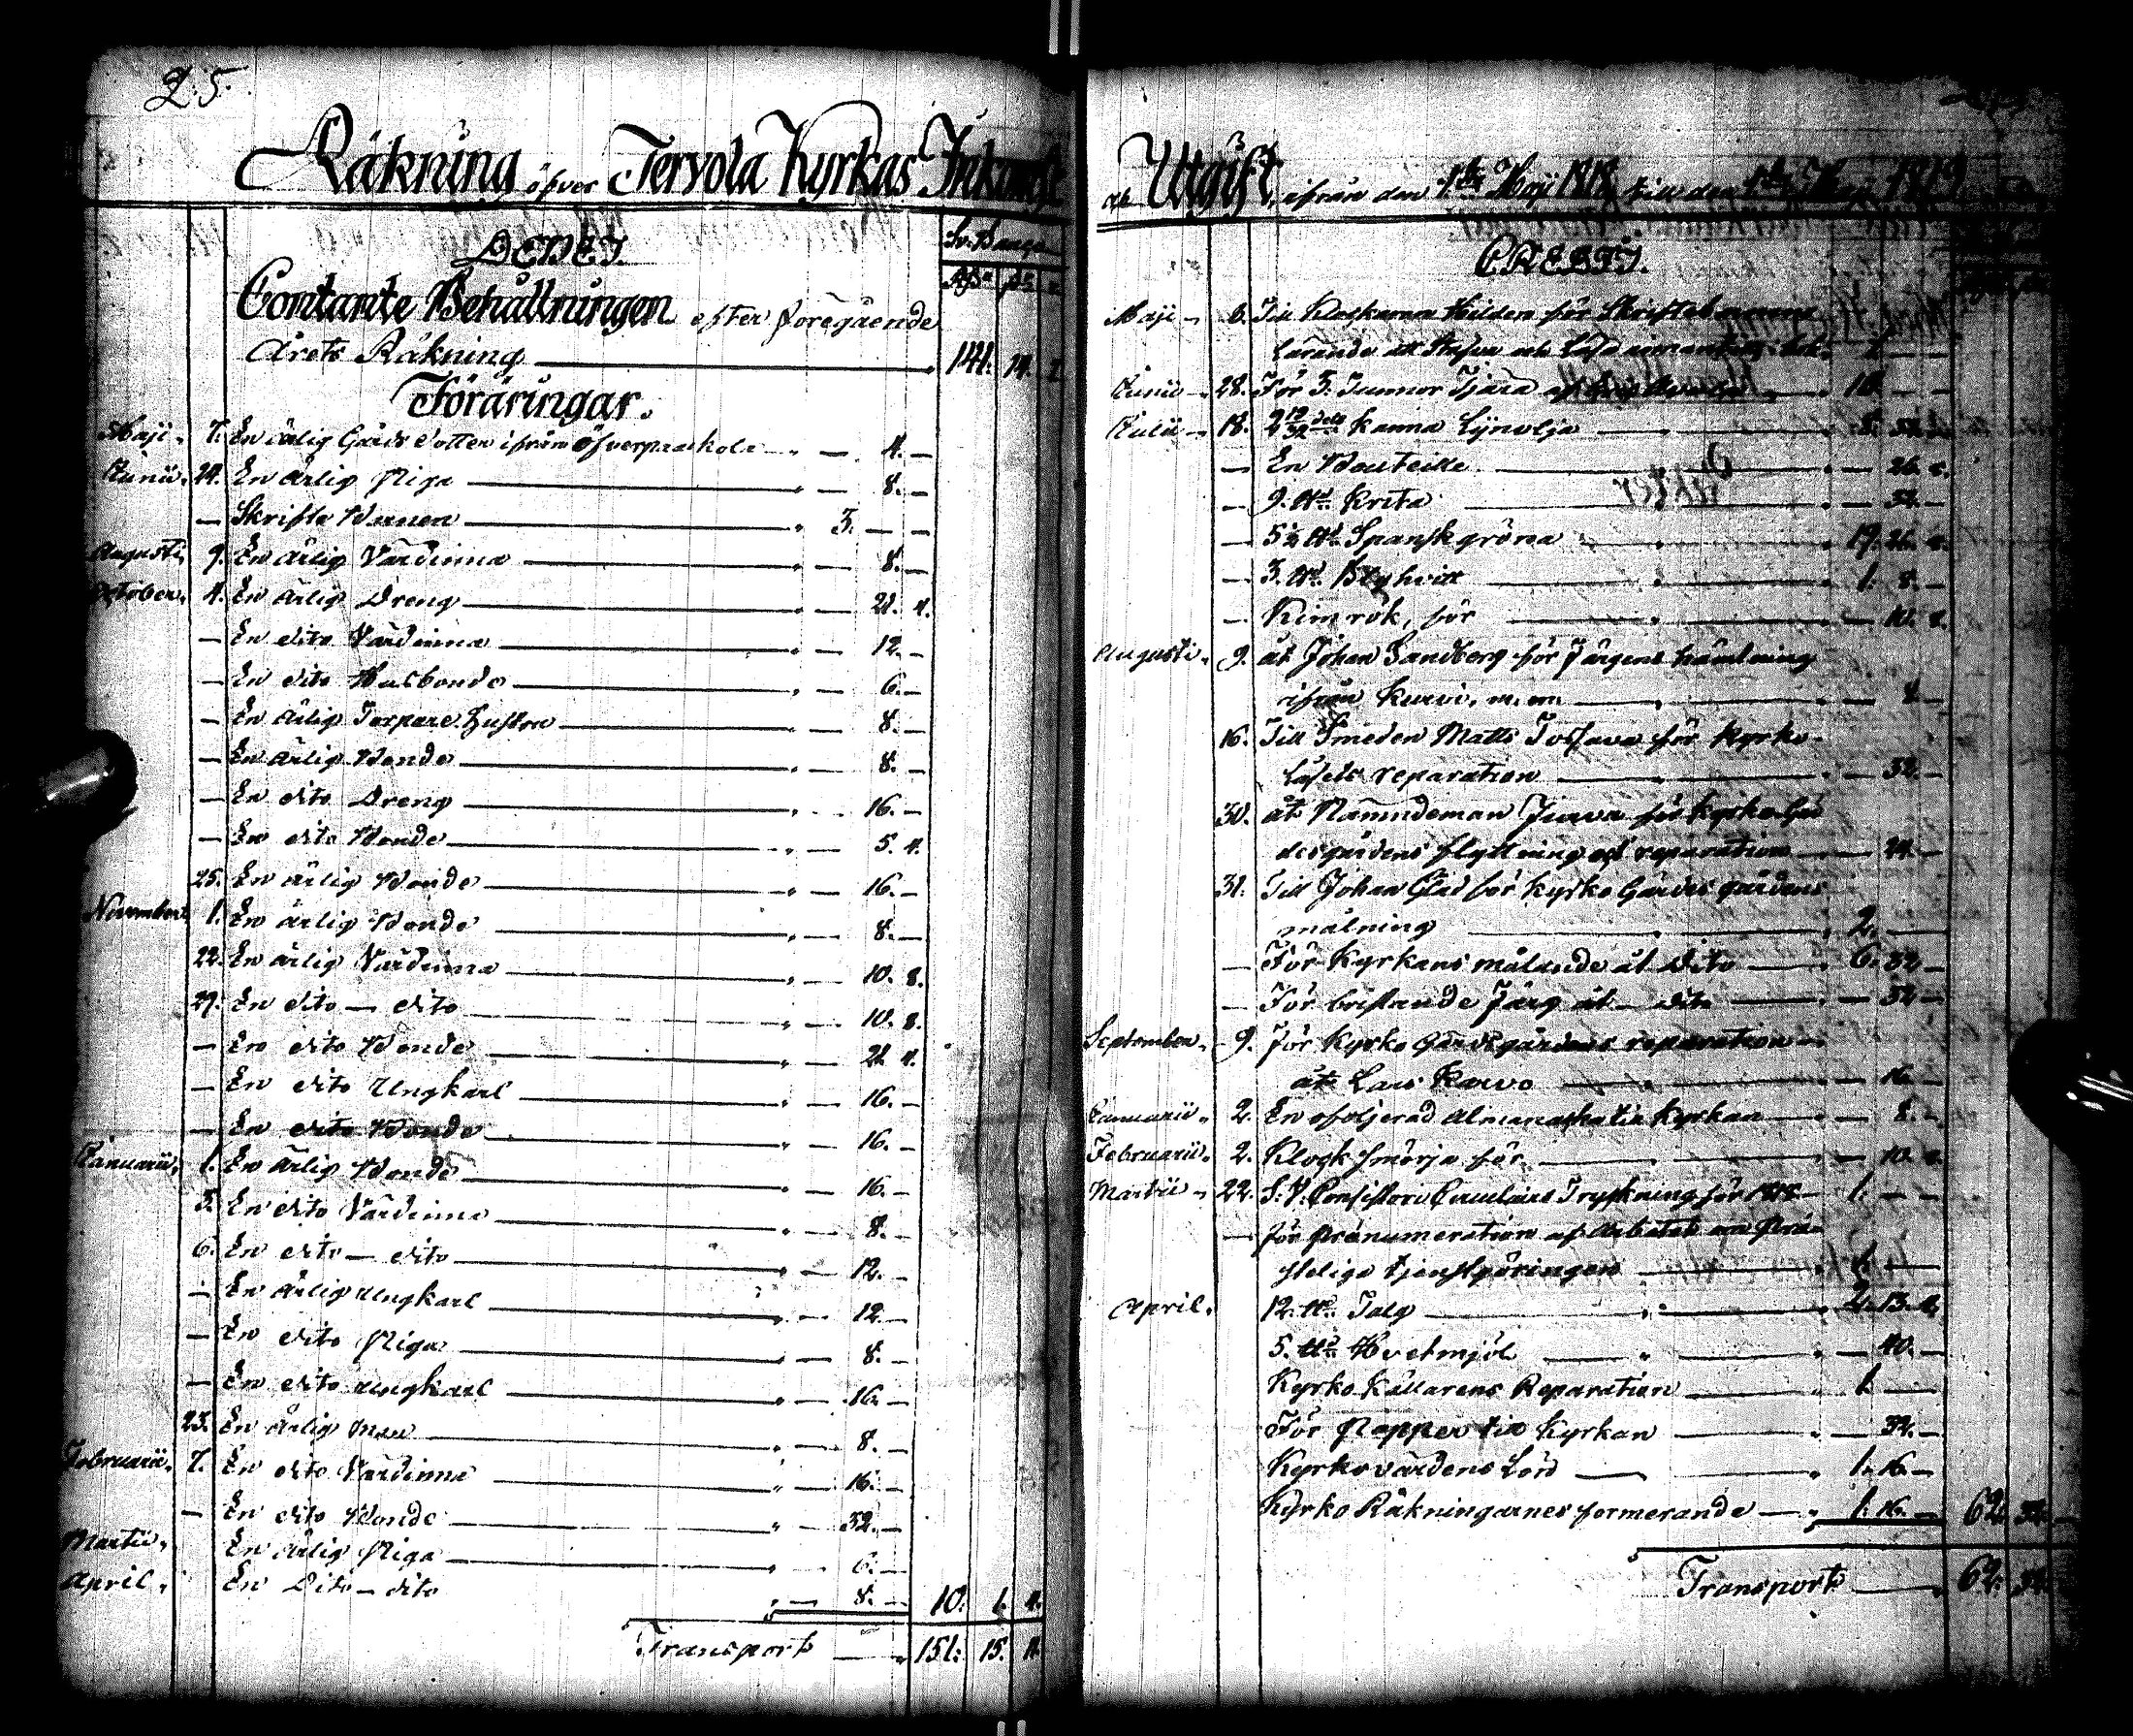 25.
Räkning öfver Tervola Kyrkas Inkomst
DEBET.
Sv. Banco
Contante Behållningen efter föregående
Årets Räkning 141. 14.
Föräringar.
Maji. 7. En ärlig Gårds dotter ifrån Öfverpaakkola — 4. —
Junii. 24. En ärlig Piga — 8. —
— Skrifte Barnen 3. — —
Augusti. 9. En ärlig Värdinna — 8. —
October. 4. En ärlig Dreng — 21. 4.
— En dito Värdinna — 12. —
— En dito Husbonde — 6. —
— En ärlig Torpare hustru — 8. —
— En ärlig Bonde — 8. —
— En dito Dreng — 16. —
— En dito Bonde — 5. 4.
25. En ärlig Bonde — 16. —
November. 1. En ärlig Bonde — 8. —
22. En ärlig Värdinna — 10. 8.
29. En dito — dito — 10. 8.
— En dito Bonde — 21. 4.
— En dito Ungkarl — 16. —
— En dito Bonde — 16. —
Januarii. 1. En ärlig Bonde — 16. —
3. En dito Värdinna — 8. —
6. En dito — dito — 12. —
— En ärlig Ungkarl — 12. —
— En dito Piga — 8. —
— En dito Ungkarl — 16. —
23. En ärlig Man — 8. —
Februarii. 7. En dito Värdinna — 16. —
— En dito Bonde — 32. —
Martii. En ärlig Piga — 6. —
April. En Dito — dito — 8. — 10. 1. 4.
Transport 151. 15. 4.
och Utgift, ifrån den 1sta Maji 1818 till den 1sta Maji 1819
CREDIT.
Maji — 6. Till för Skriftebarnens
lärande att och Läsa
Junii — 28. För 3. Tunnor Tjära 10. — —
Julii — 18. 2 12/32 dels Kanna Linolja
— En Bouteille — 26.
— 9. lb Krita — 32. —
— 5½ lb Spanskgröna 19. 26.
— 3. lb Blyhvitt 1. 8. —
— Kimrök, för — 10.
Augusti. 9. åt Johan Sandberg för Färgens hämtning
ifrån m. m. — 4. —
16. Till Smeden Matts för Kyrko
låsets reparation — 32. —
30. åt Nämndeman för Kyrko Gär
desgårdens flyttning och reparation — 24. —
31. Till Johan Glad för Kyrko Gärdes gårdens
målning 2. —
— För Kyrkans målande åt dito 6. 32 —
— För bristande Färg åt — dito — 32 —
September. 9. för Kyrko Gärdesgårdens reparation —
åt Lars — 16. —
Januarii. 2. En ofoljerad Almanacka till Kyrkan — 8. —
Februarii. 2. Klock smörja för — 10.
Martii — 22. S. V. Consistorii Circulairs Tryckning för 1818 — 1. — —
— för Prænumeration af Arbetet om Prä-
sterliga tjenstgöringen 1. —
April. 12. lb Talg 2. 13.
5. lb Hvetmjöl — 40. —
Kyrko Källarens Reparation 1. —
För Papper till Kyrkan — 32. —
Kyrkovärdens Lön 1. 16. —
Kyrko Räkningarnes formerande — 1. 16. — 62. 32.
Transport 62. 32.